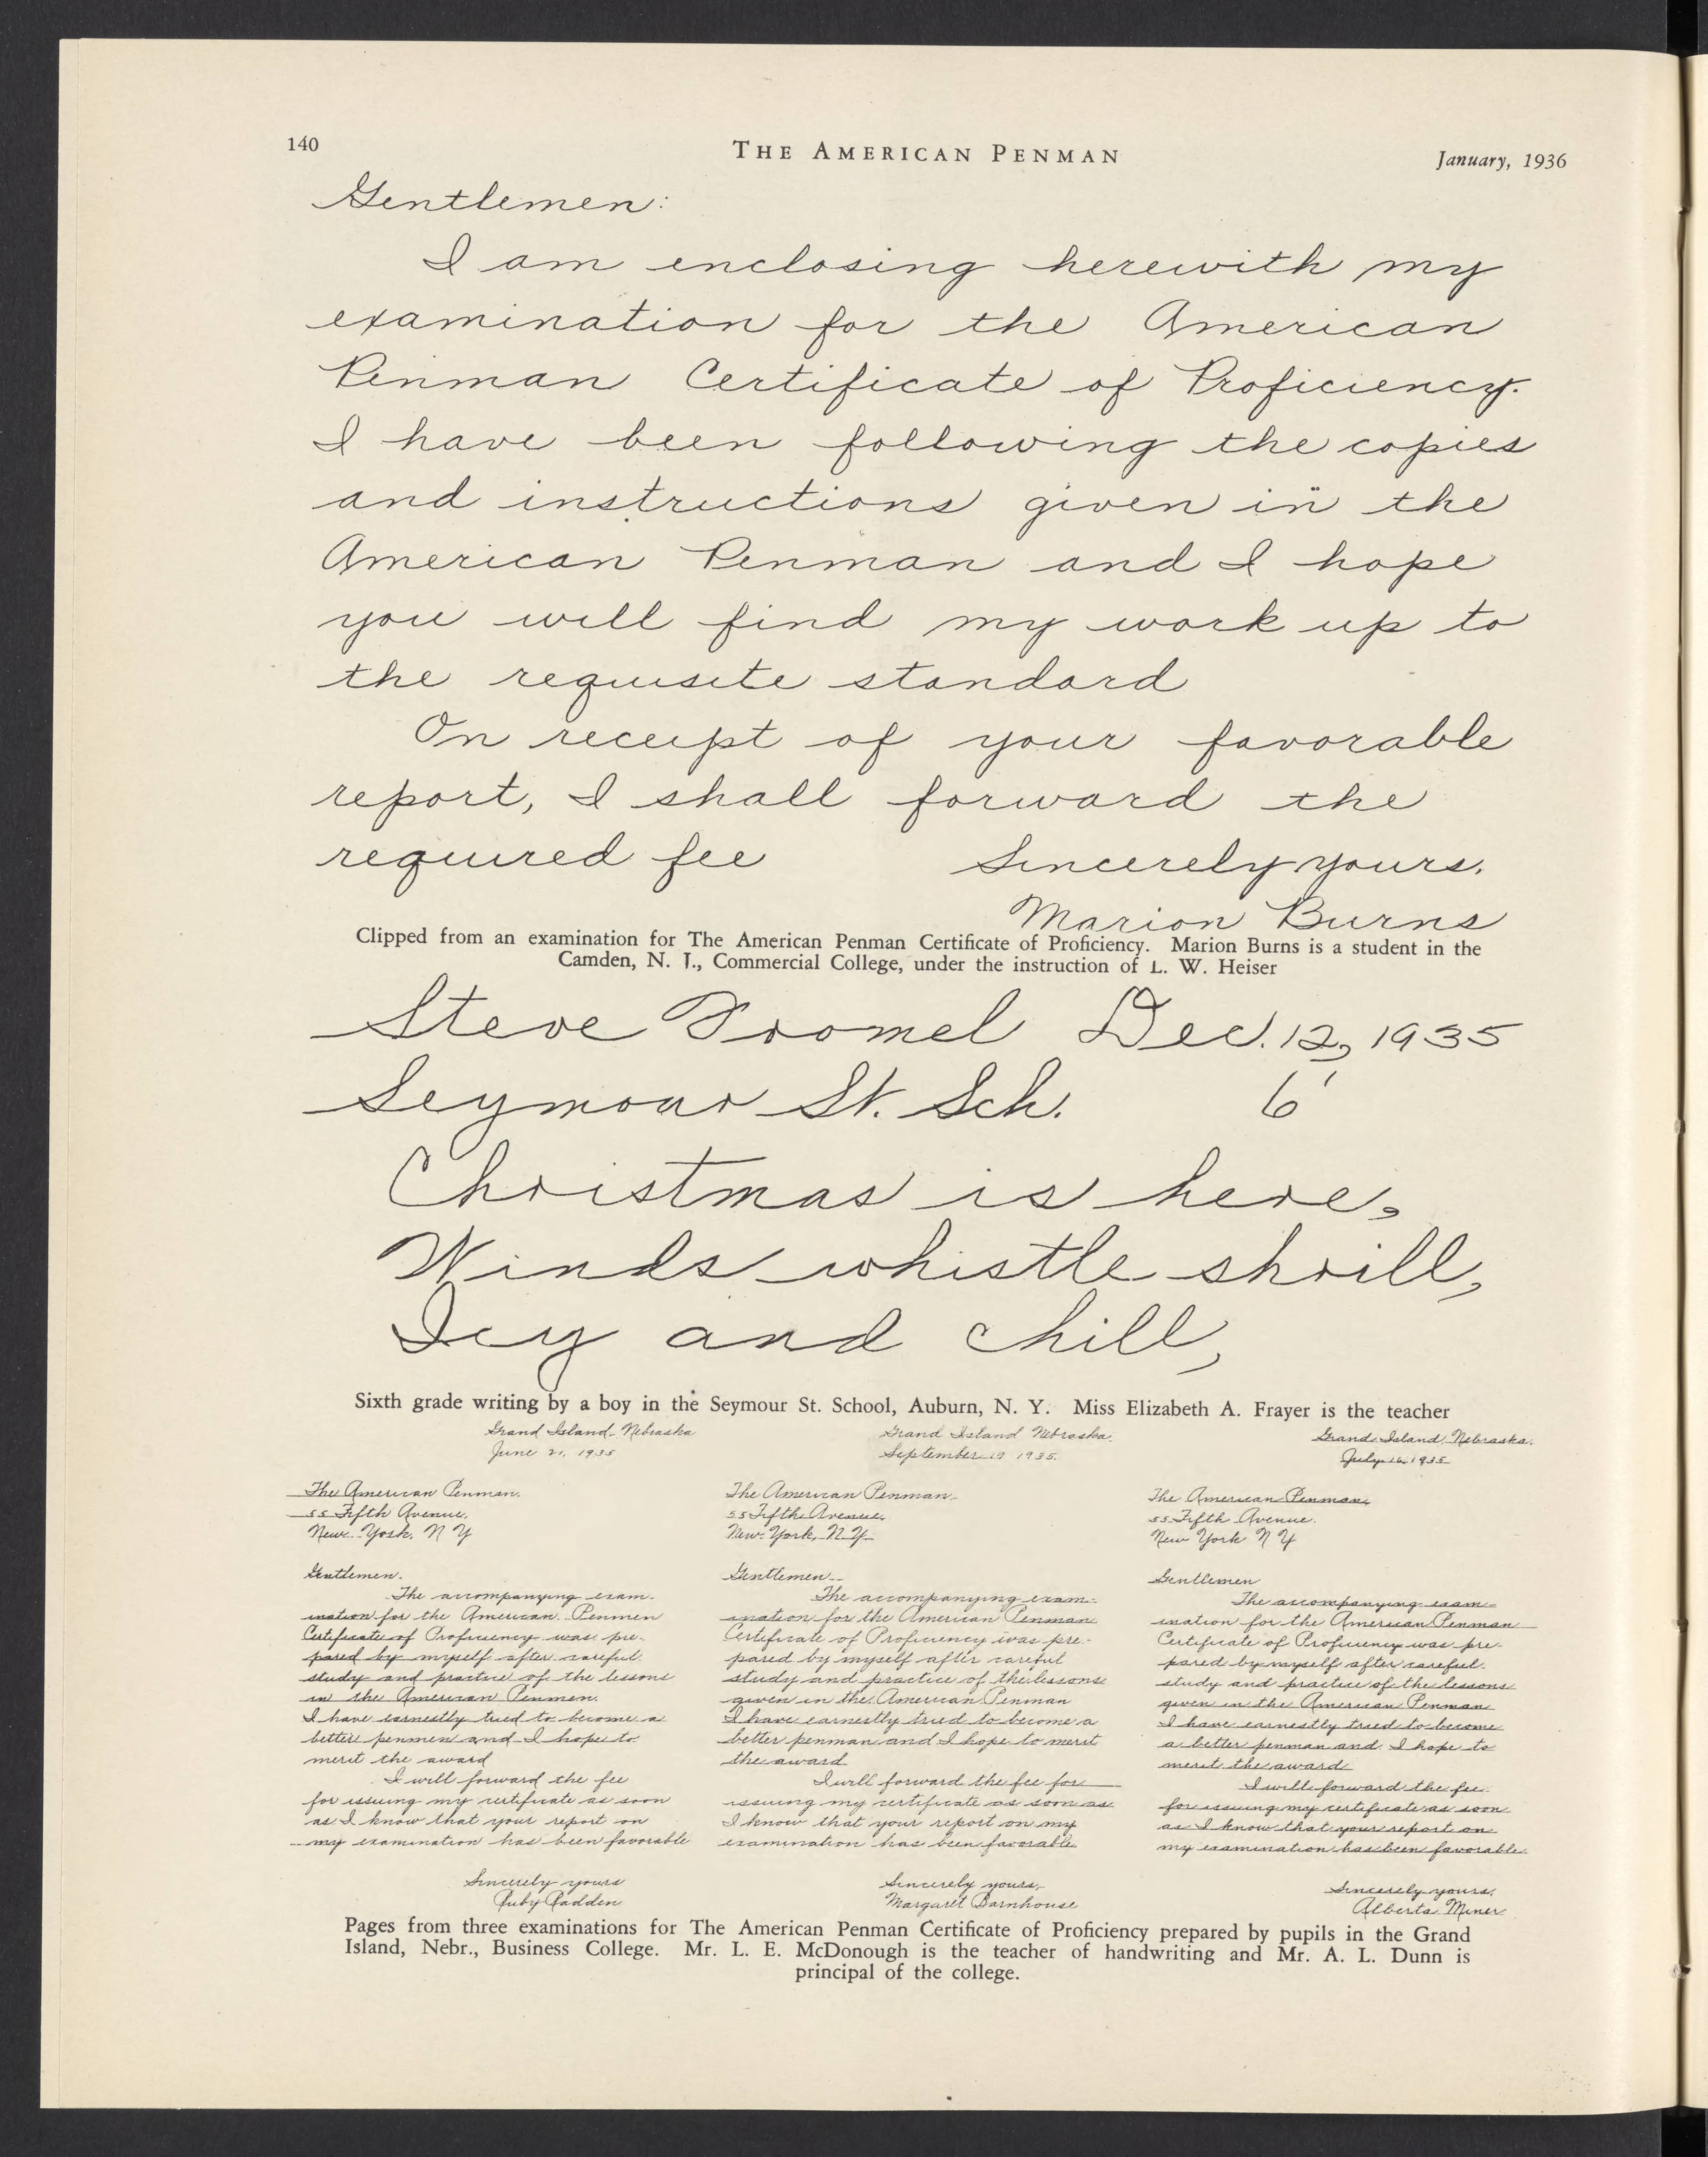 140
THE AMERICAN PENMAN
January, 1936
Gentlemen:
I am enclosing herewith my
examination for the American
Penman Certificate of Proficiency.
I have been following the copies
and instructions given in the
American Penman and I hope
you will find my work up to
the requisite standard
On receipt of your favorable
report, I shall forward the
required fee
Sincerely yours,
Marion Burns
Clipped from an examination for The American Penman Certificate of Proficiency. Marion Burns is a student in the
Camden, N. J., Commercial College, under the instruction of L. W. Heiser
Steve Dec. 12, 1935
Seymour St. Sch. 6
Christmas is here,
Winds whistle shrill,
Icy and chill,
Sixth grade writing by a boy in the Seymour St. School, Auburn, N. Y. Miss Elizabeth A. Frayer is the teacher
Grand Island, Nebraska
June 21, 1935
The American Penman.
55 Fifth Avenue,
New York, N Y
Gentlemen.
The accompanying exam-
ination for the American Penmen
Certificate of Proficiency was pre-
pared by myself after careful
study and practice of the lessons
in the American Penmen.
I have earnestly tried to become a
better penmen and I hope to
merit the award
I will forward the fee
for issuing my certificate as soon
as I know that your report on
my examination has been favorable
Sincerely yours
Ruby Padden
Grand Island Nebraska.
September 19 1935.
The American Penman.
55 Fifth Avenue,
New York, N. Y.
Gentlemen
The accompanying exam-
ination for the American Penman
Certificate of Proficiency was pre-
pared by myself after careful
study and practice of the lessons
given in the American Penman
I have earnestly tried to become a
better penman and I hope to merit
the award
I will forward the fee for
issuing my certificate as soon as
I know that your report on my
examination has been favorable
Sincerely yours,
Margaret Barnhouse
Grand Island, Nebraska.
July 16 1935
The American Penman,
55 Fifth Avenue.
New York N Y
Gentlemen
The accompanying exam-
ination for the American Penman
Certificate of Proficiency was pre-
pared by myself after careful
study and practice of the lessons
given in the American Penman
I have earnestly tried to become
a better penman and I hope to
merit the award
I will forward the fee
for issuing my certificate as soon
as I know that your report on
my examination has been favorable
Sincerely yours,
Alberta Miner
Pages from three examinations for The American Penman Certificate of Proficiency prepared by pupils in the Grand
Island, Nebr., Business College. Mr. L. E. McDonough is the teacher of handwriting and Mr. A. L. Dunn is
principal of the college.